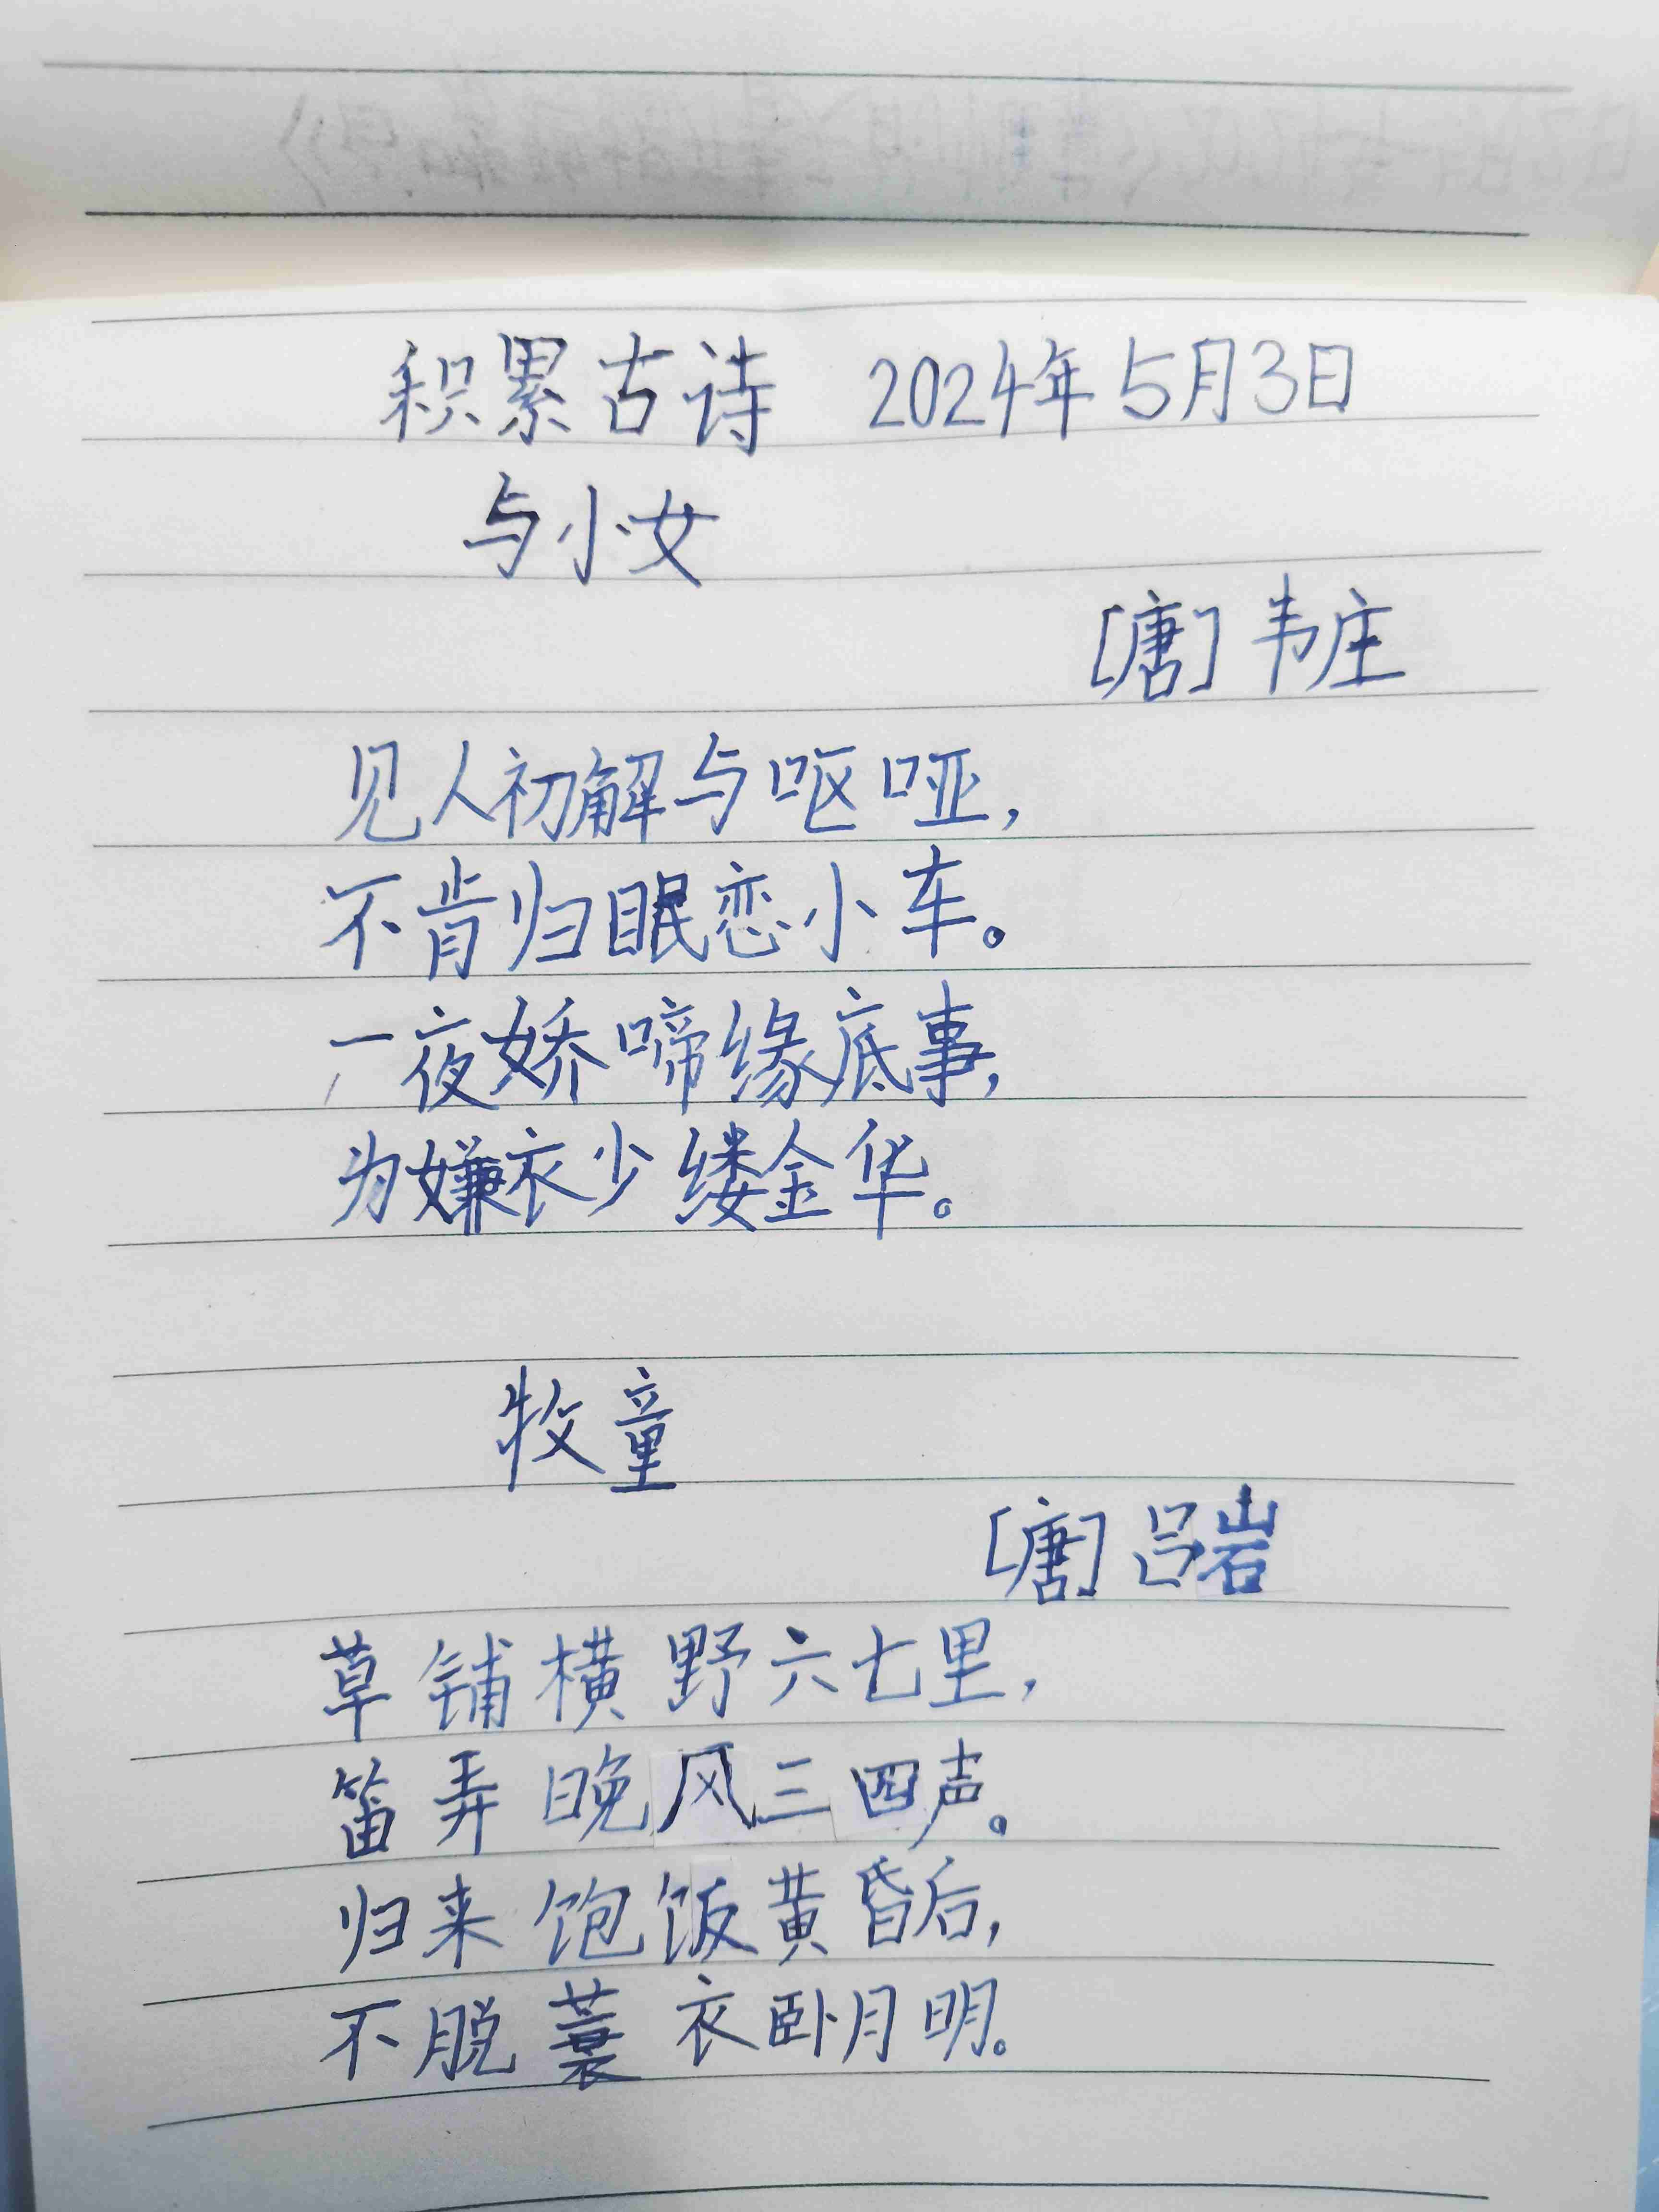 积累古诗 2024年5月3日
与小女
[唐] 韦庄
见人初解与呕哑,
不肯归眠恋小车。
一夜娇啼缘底事,
为嫌衣少缕金华。
牧童
[唐] 吕岩
草铺横野六七里,
笛弄晚风三四声。
归来饱饭黄昏后,
不脱蓑衣卧月明。